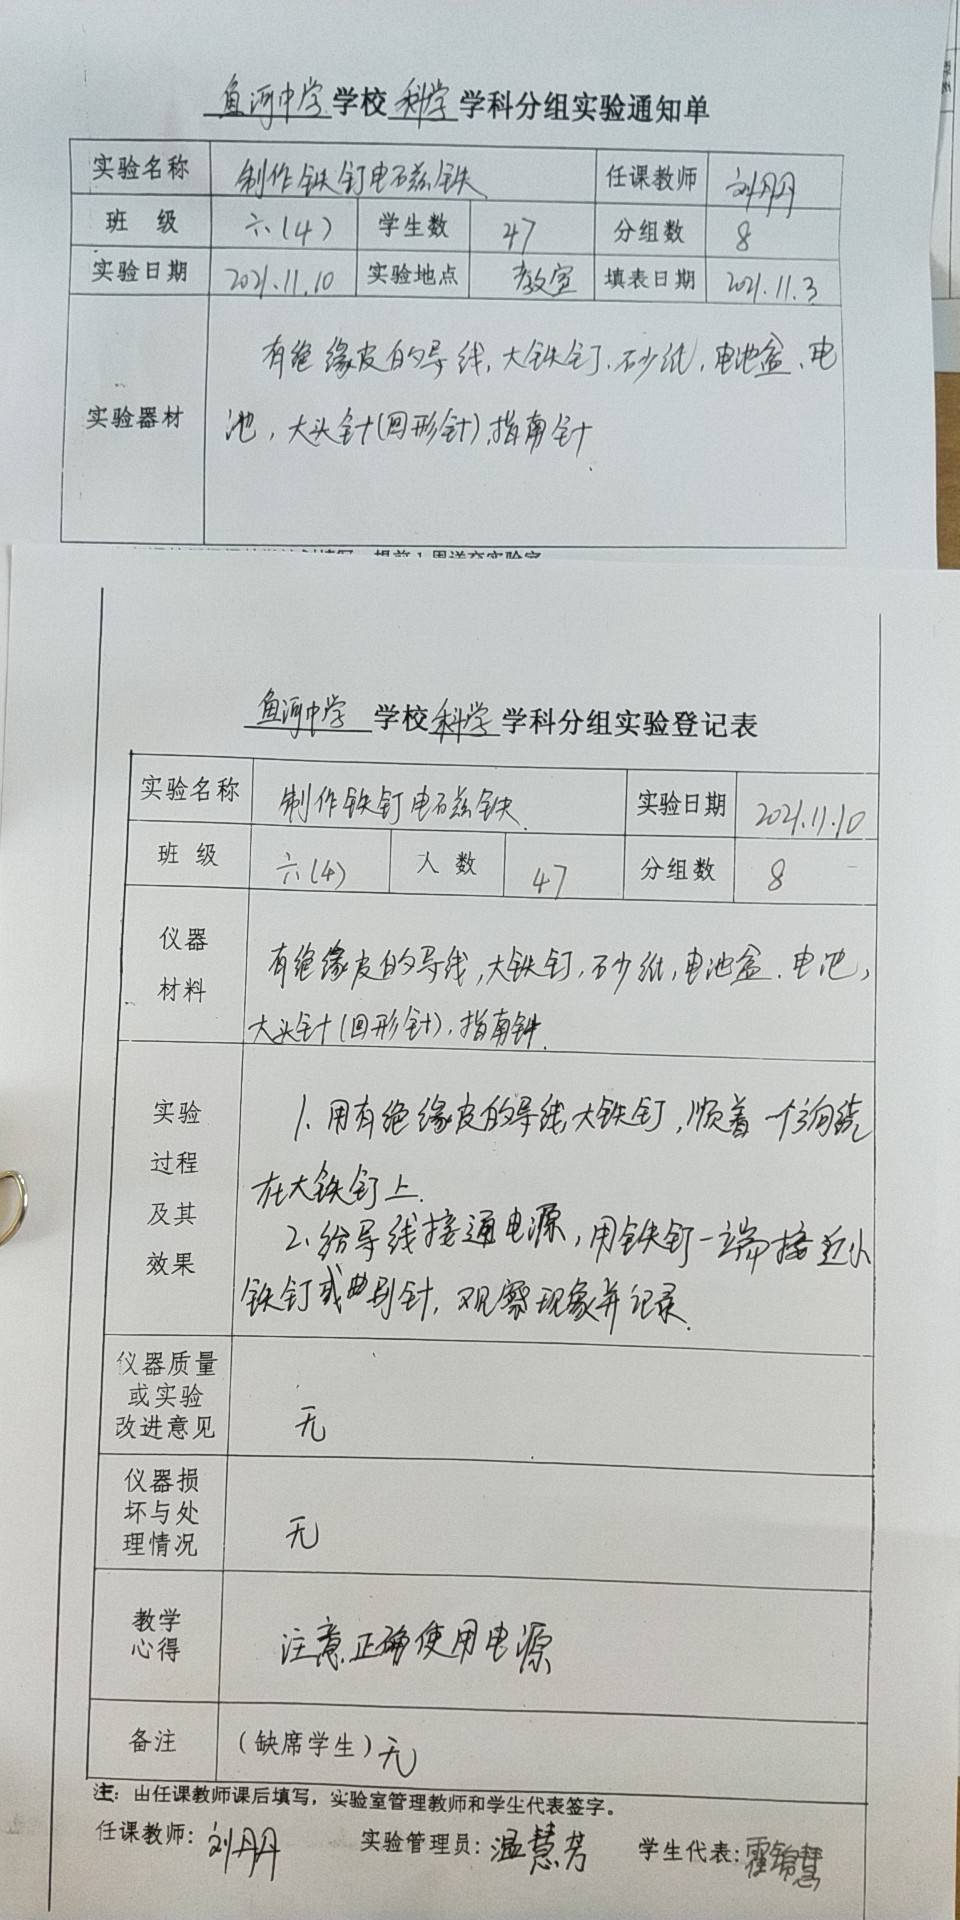 鱼河中学 学校 科学 学科分组实验通知单
实验名称 制作铁钉电磁铁 任课教师 刘丹丹
班 级 六(4) 学生数 47 分组数 8
实验日期 2021.11.10 实验地点 教室 填表日期 2021.11.3
有绝缘皮的导线,大铁钉,砂纸,电池盒、电
实验器材 池,大头针(回形针),指南针
鱼河中学 学校 科学 学科分组实验登记表
实验名称 制作铁钉电磁铁. 实验日期 2021.11.10
班 级 六(4) 人 数 47 分组数 8
仪器
材料
有绝缘皮的导线,大铁钉,砂纸,电池盒.电池,
大头针(回形针),指南针.
实验
过程
及其
效果
1.用有绝缘皮的导线,大铁钉,顺着一个方向绕
在大铁钉上.
2.给导线接通电源,用铁钉一端接近小
铁钉或曲别针,观察现象并记录.
仪器质量
或实验
改进意见
无
仪器损
坏与处
理情况
无
教学
心得
注意正确使用电源
备注 (缺席学生)无
注:由任课教师课后填写,实验室管理教师和学生代表签字。
任课教师:刘丹丹 实验管理员:温慧芳 学生代表:霍锦慧